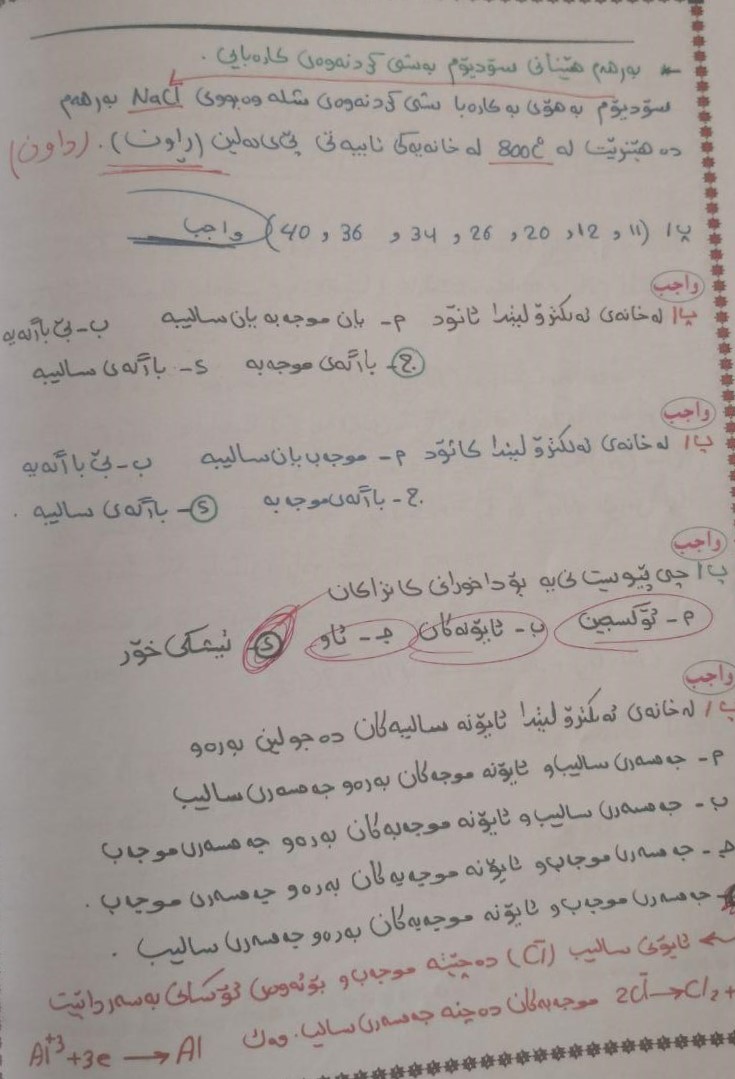 بەرهەم هێنانی سۆدیۆم بەشی کردنەوەی کارەبایی .
سۆدیۆم بەهۆی بەکارەبا شی کردنەوەی شلەوەبووی NaCl بەرهەم
دەهێنرێت لە 800C° لە خانەیەکی تایبەتی پێی دەلێن (راون) . (داون)
پ/ (11 , 12 , 20 , 26 , 34 , 36 , 40) واجب
واجب
پ/ لە خانەی ئەلکترۆلیتدا ئانۆد م- یان موجەبە یان سالیبە ب- بێ بارگەیە
ج- بارگەی موجەبە د- بارگەی سالیبە
واجب
پ/ لە خانەی ئەلکترۆلیتدا کاثۆد م- موجەب یان سالیبە ب- بێ بارگەیە
ج- بارگەی موجەبە د- بارگەی سالیبە .
واجب
پ/ چی پێویست نی یە بۆ داخورانی کانزاکان
م- ئۆکسجین ب- ئایۆنەکان جـ- ئاو د- تیشکی خۆر
واجب
پ/ لە خانەی ئەلکترۆلیتدا ئایۆنە سالیبەکان دەجولێن بەرەو
م- جەمسەری سالیب و ئایۆنە موجەبەکان بەرەو جەمسەری سالیب
ب- جەمسەری سالیب و ئایۆنە موجەبەکان بەرەو جەمسەری موجەب
جـ- جەمسەری موجەب و ئایۆنە موجەبەکان بەرەو جەمسەری موجەب .
- جەمسەری موجەب و ئایۆنە موجەبەکان بەرەو جەمسەری سالیب .
ئایۆنی سالیب (Cl⁻) دەچێتە موجەب و بۆئەوەی ئۆکسانی بەسەردابێت
2Cl⁻→Cl₂+ موجەبەکان دەچنە جەمسەری سالیب. وەک Al⁺³+3e → Al